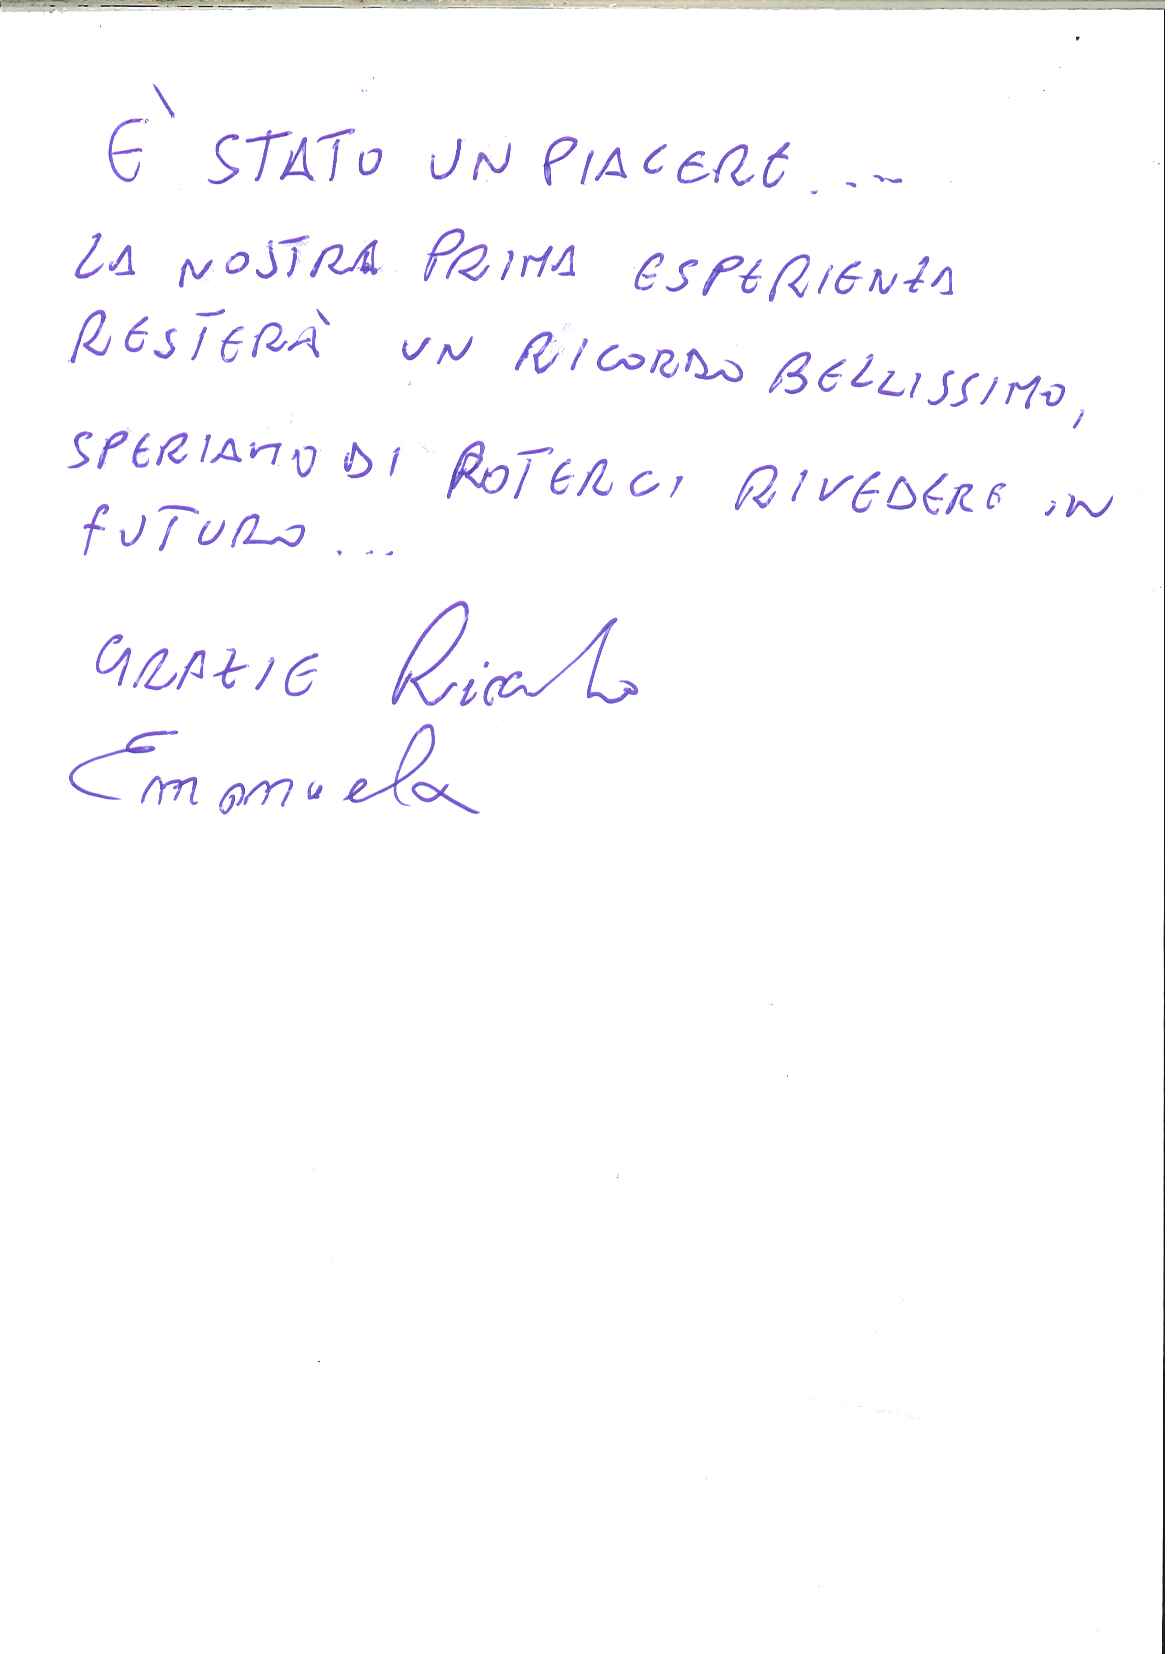 È STATO UN PIACERE...
LA NOSTRA PRIMA ESPERIENZA
RESTERÀ UN RICORDO BELLISSIMO,
SPERIAMO DI POTERCI RIVEDERE IN
FUTURO...
GRAZIE
Emanuela